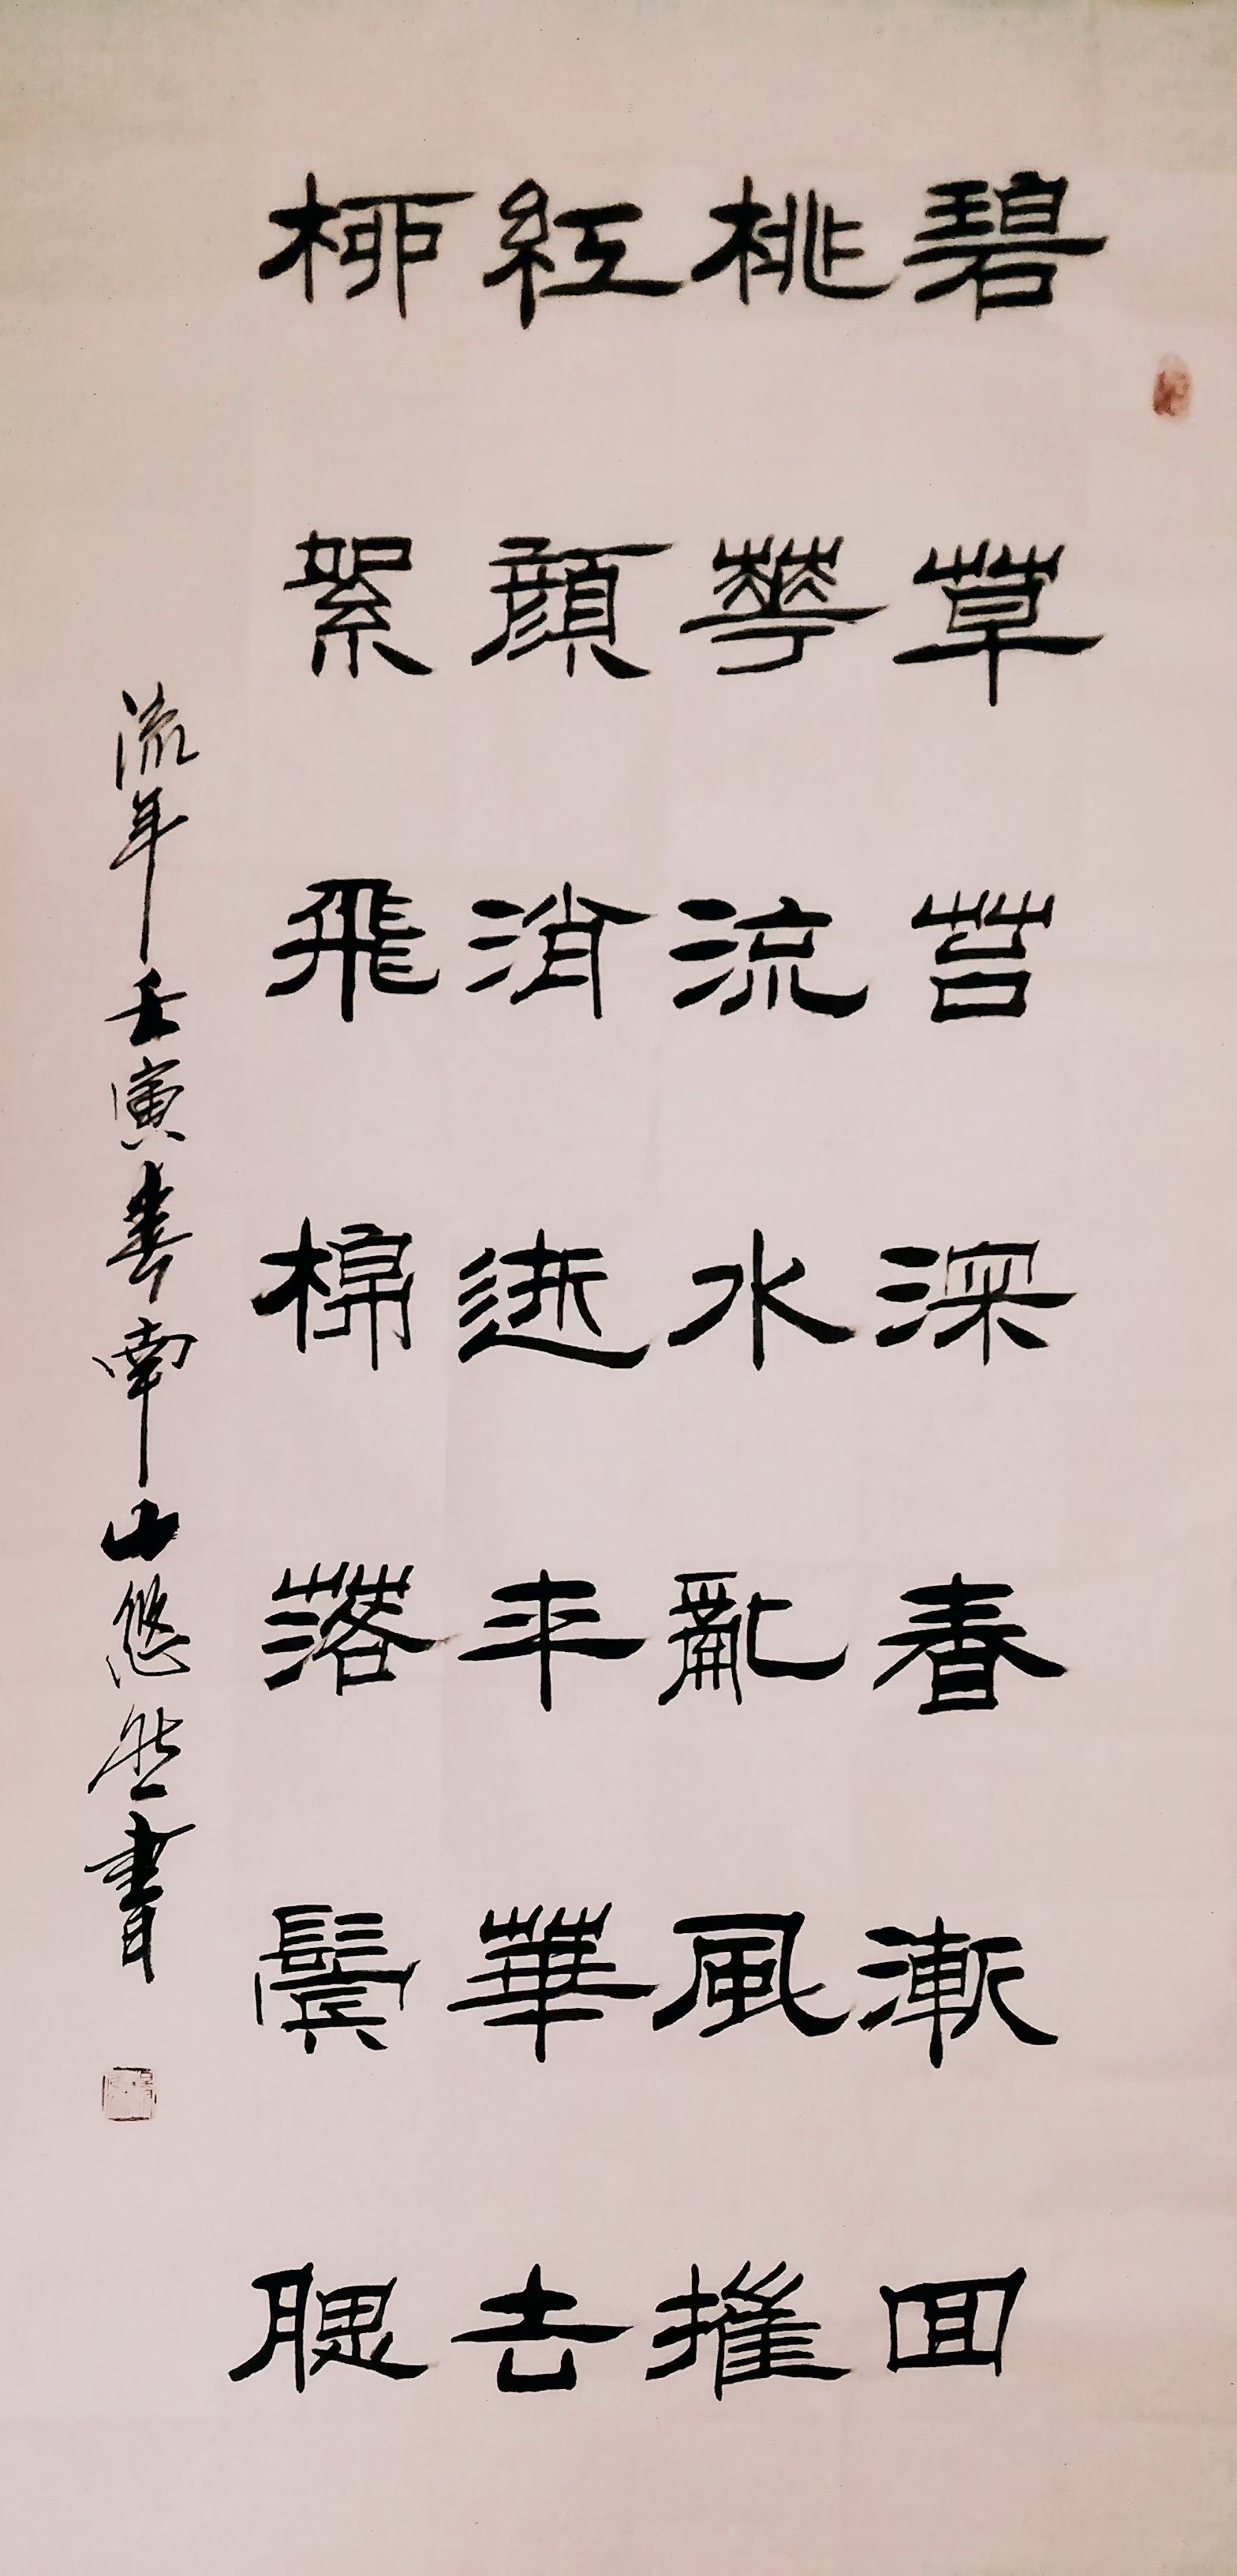 碧草苔深春漸回
桃華流水亂風摧
紅顏消逝年華去
柳絮飛棉落鬢腮
流年壬寅春南山悠然書